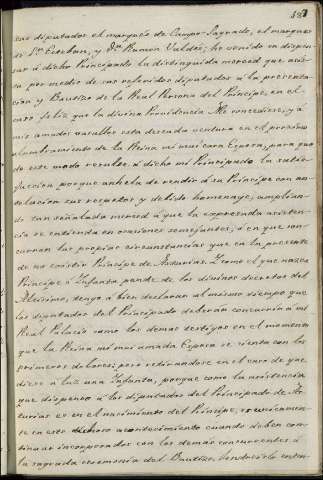 187
sus diputados el marqués de Campo-Sagrado, el marques
de Sn. Esteban, y Dn. Ramon Valdés; he venido en dispen-
sar á dicho Principado la distinguida merced que asis-
ta por medio de sus referidos diputados á la presenta-
cion y Bautizo de la Real Persona del Príncipe, en el
caso feliz que la divina Providencia Me concediese, y á
mis amados vasallos esta deseada ventura en el próximo
alumbramiento de la Reina mi mui cara Esposa, para que
de este modo resulte á dicho mi Principado la satis-
faccion porque anhela de rendir á su Príncipe con an-
telacion sus respetos y debido homenage, amplian-
do tan señalada merced á que la espresada asisten-
cia se entienda en ocasiones semejantes, á en que con-
curran las propias circunstancias que en la presente
de no ecsistir Príncipe de Asturias. Y como el que nazca
Príncipe ó Infanta pende de los divinos decretos del
Altísimo, tengo á bien declarar al mismo tiempo que
los diputados del Principado deberán concurrir á mi
Real Palacio como los demas testigos en el momento
que la Reina mi mui amada Esposa se sienta con los
primeros dolores; pero retirandose en el caso de que
diere á luz una Infanta, porque como la asistencia
que dispenso á los diputados del Principado de As-
turias es en el nacimiento del Príncipe,
se en este dichoso acontecimiento cuando deben con-
tinuar incorporados con los demas concurrentes á
la sagrada ceremonia del Bautizo,